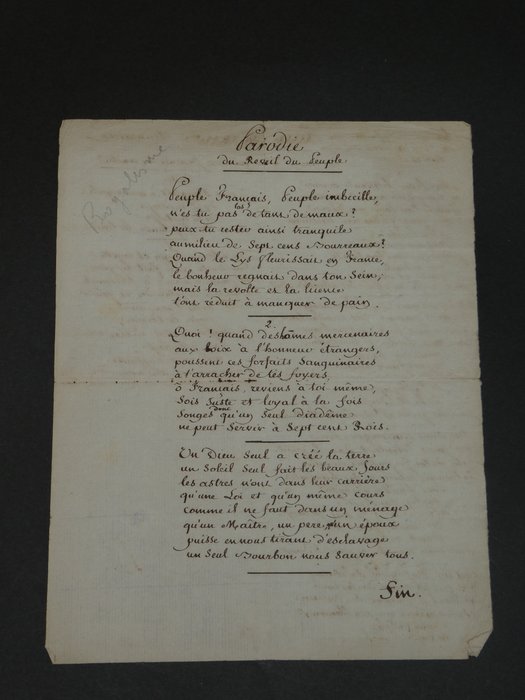 Parodie
du Reveil du Peuple
Royalisme
Peuple Français, Peuple imbécille,
n'es tu pas las de tant de maux?
peux tu rester ainsi tranquile
au milieu de Sept cens Bourreaux?
Quand le Lys fleurissait en France,
le bonheur regnait dans ton Sein;
mais la revolte et la licence
t'ont réduit à manquer de pain.
2.
Quoi! quand des âmes mercenaires
aux voix à l'honneur étrangers,
poussent ces forfaits Sanguinaires
à t'arracher de tes foyers
ô Français, reviens à toi même,
Sois juste et loyal à la fois
Songes donc qu'un Seul diadême
ne peut Servir à Sept cent Rois.
Un Dieu Seul a créé la terre
un Soleil Seul fait les beaux Jours
les astres n'ont dans leur carrière
qu'une Loi et qu'un même cours
comme il ne faut dans un ménage
qu'un Maître, un pere, un époux
puisse en nous tirant d'esclavage
un Seul Bourbon nous Sauver tous.
Fin.